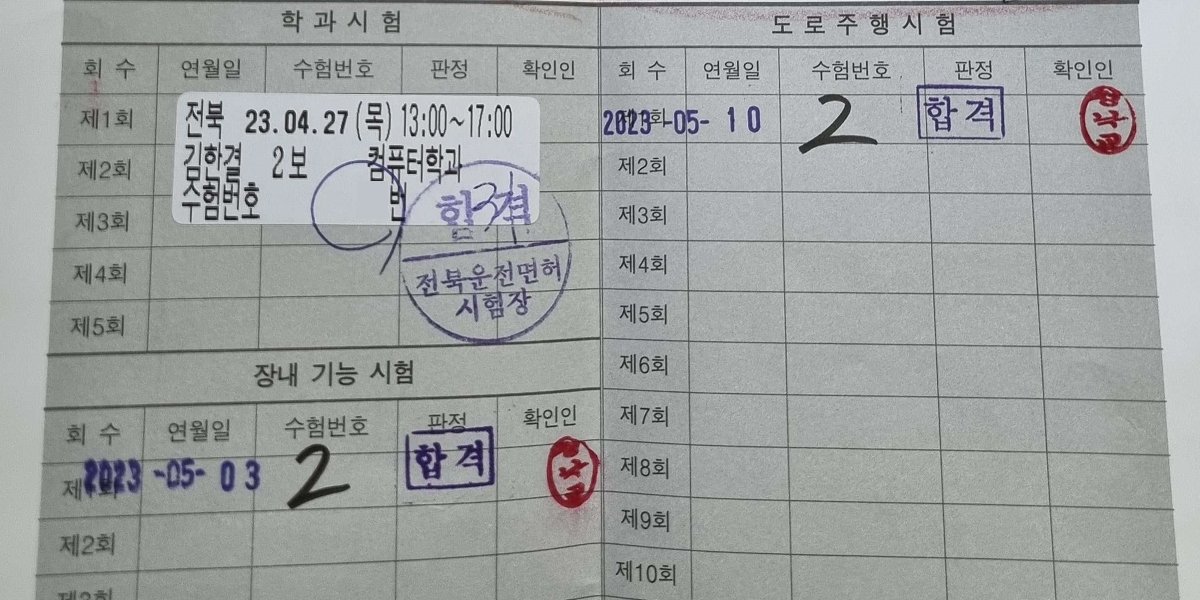 학과시험
회 수 연월일 수험번호 판정 확인인
1
제1회
전북 23.04.27(목) 13:00~17:00
제2회
김한결 2보 컴퓨터학과
수험번호 번
합격
제3회
제4회
전북운전면허
시험장
제5회
장내 기능 시험
회 수 연월일 수험번호 판정 확인인
2023-05-03 2 합격
제2회
제3회
도로주행시험
회 수 연월일 수험번호 판정 확인인
2023-05-10 2 합격
제2회
제3회
제4회
제5회
제6회
제7회
제8회
제9회
제10회